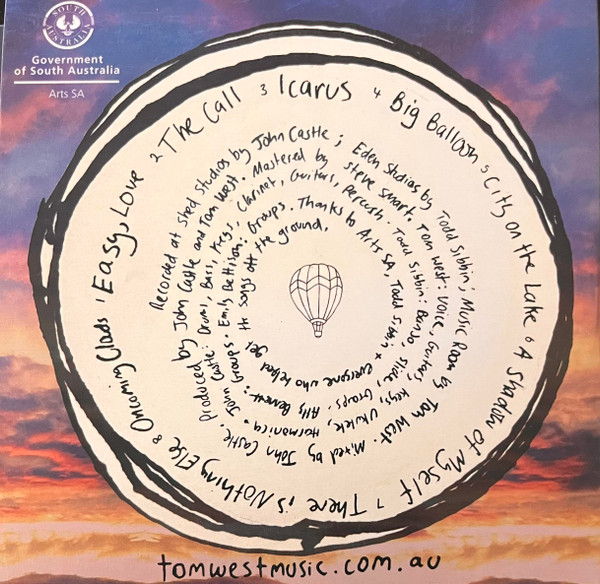 SOUTH
AUSTRALIA
Government
of South Australia
Arts SA
1 Easy Love 2 The Call 3 Icarus 4 Big Balloon 5 City on the Lake 6 A Shadow of Myself 7 There is Nothing Else 8 Oncoming Clouds
Recorded at Shed Studios by John Castle; Eden Studios by Todd Sibbin; Music Room by Tom West. Mixed by John Castle.
Produced by John Castle and Tom West. Mastered by Steve Smart. Tom West: Voice, Guitars, Keys, Ukulele, Harmonica.
John Castle: Drums, Bass, Keys, Clarinet, Guitars, Percush. Todd Sibbin: Banjo, Slide, Groups. Ally Bennett: Groups.
Emily Bettison: Groups. Thanks to Arts SA, Todd Sibbin + everyone who helped get
the songs off the ground.
tomwestmusic.com.au